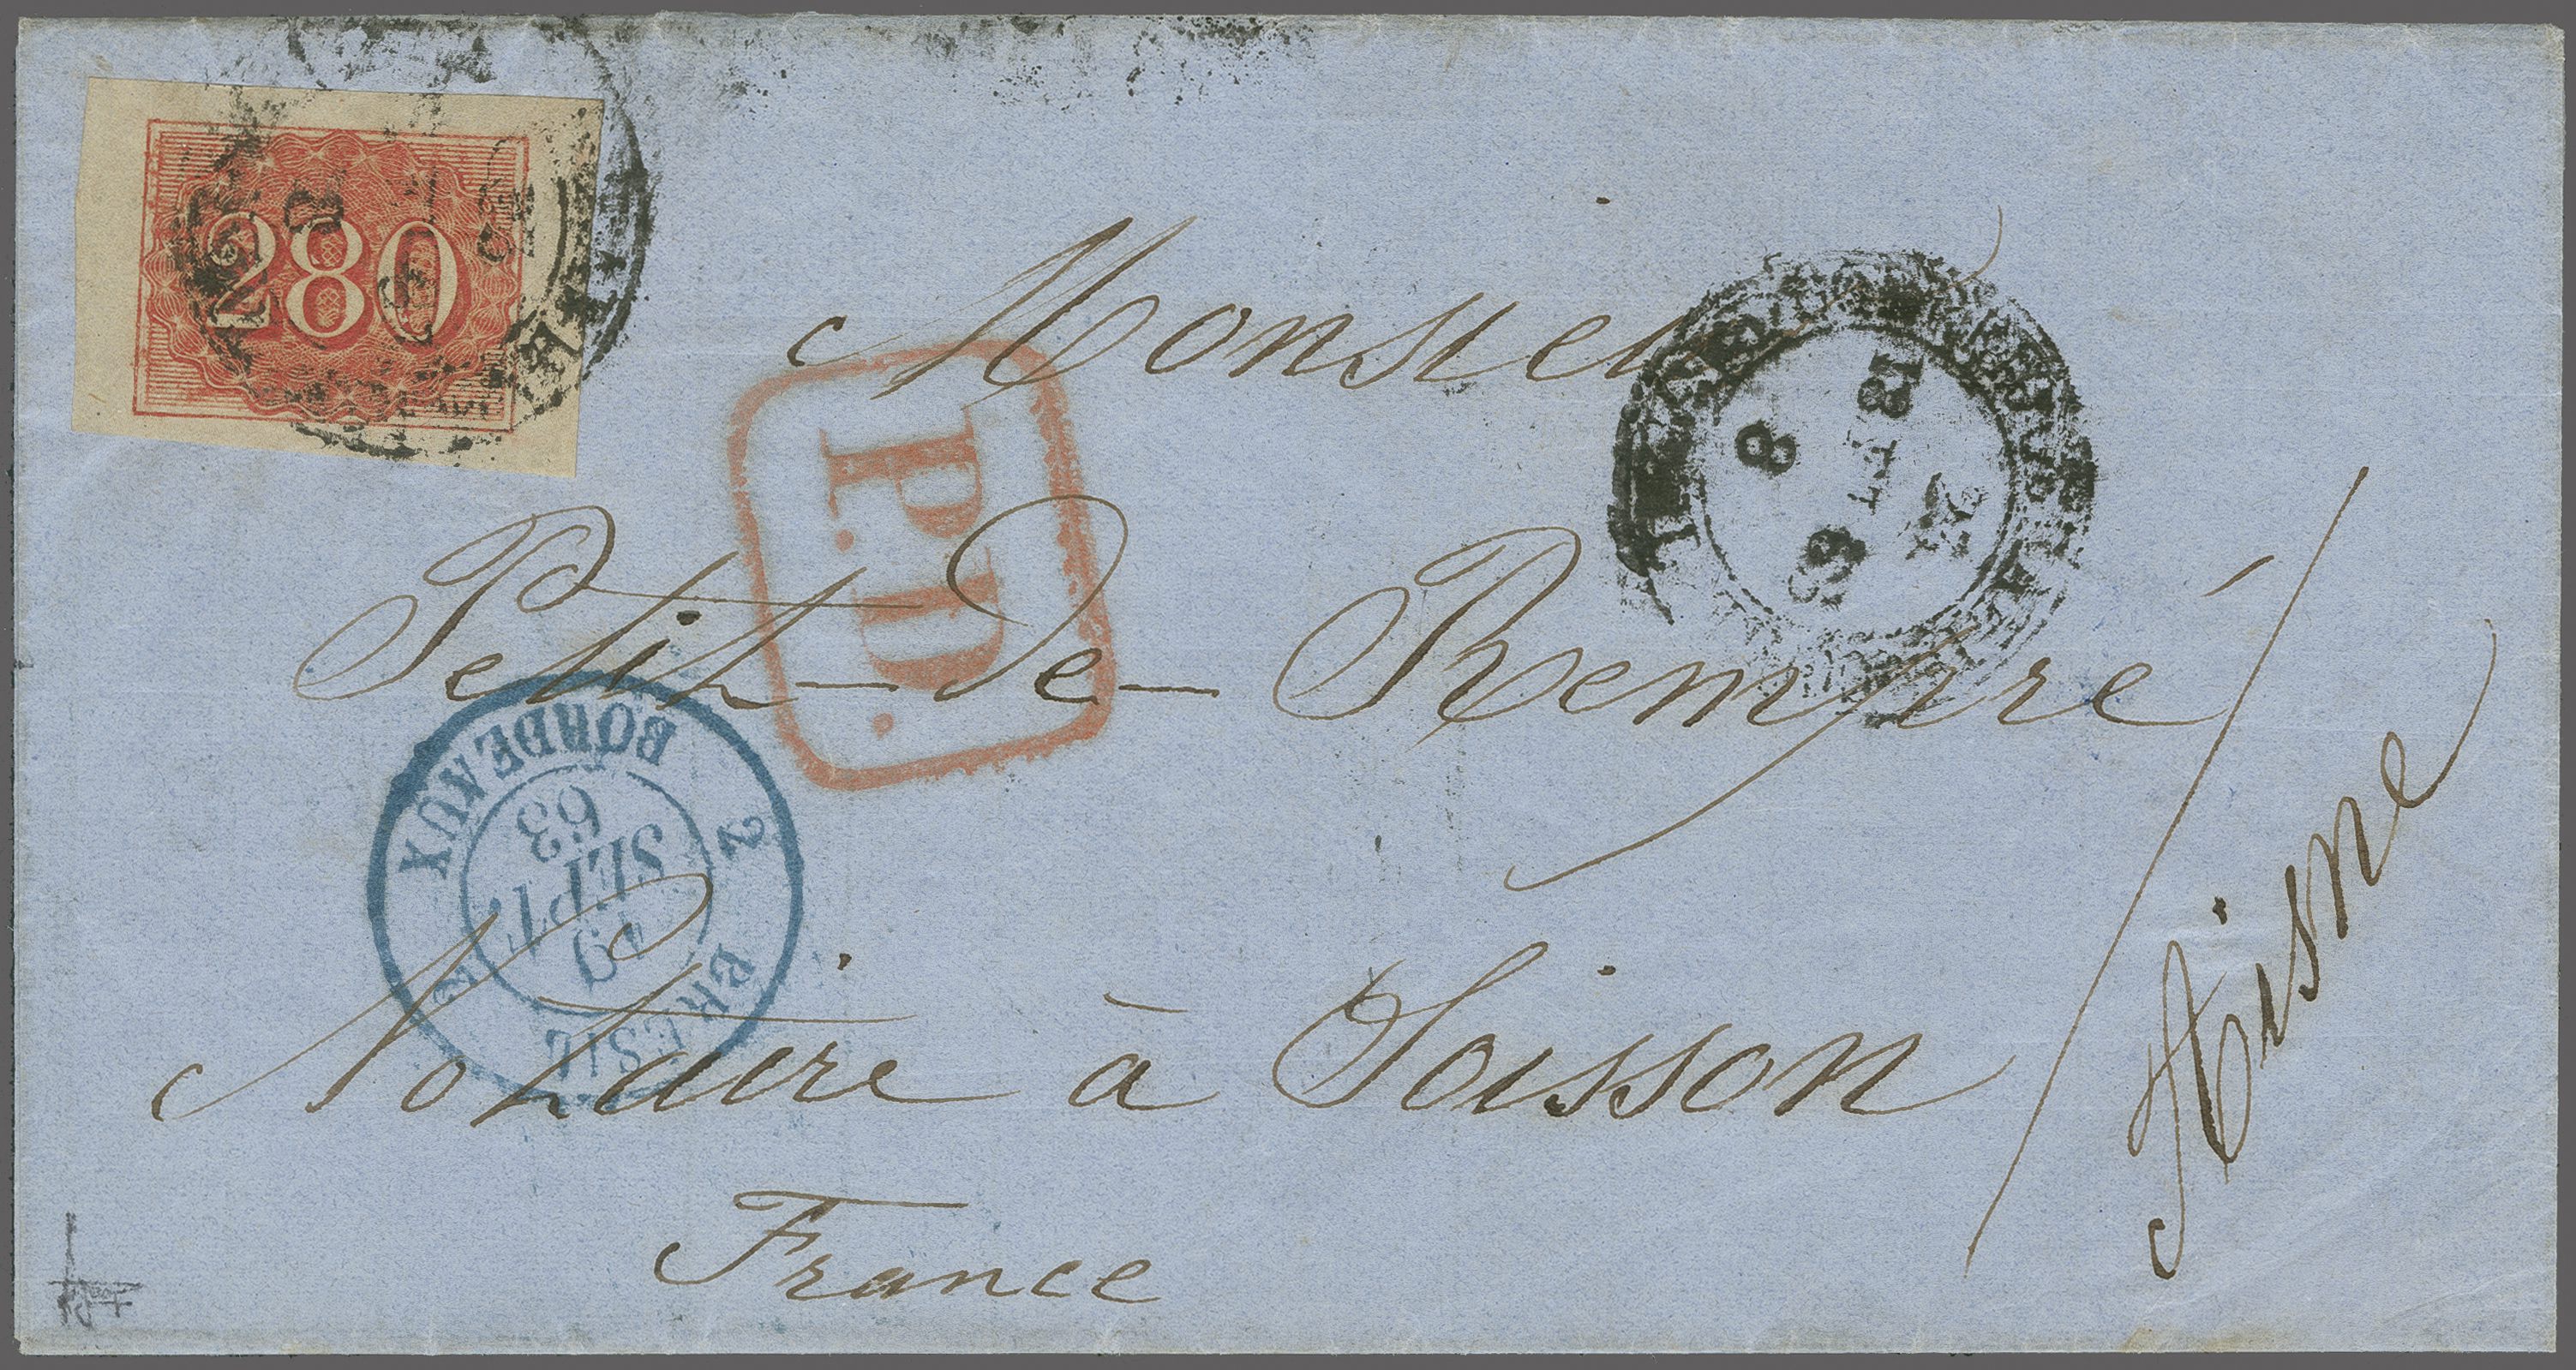 280
Monsieur
P.D.
Petit-de-Rempré
8
63
2 BRESIL
19
SEPT.
63
BORDEAUX
Notaire à Soisson / Aisne
France